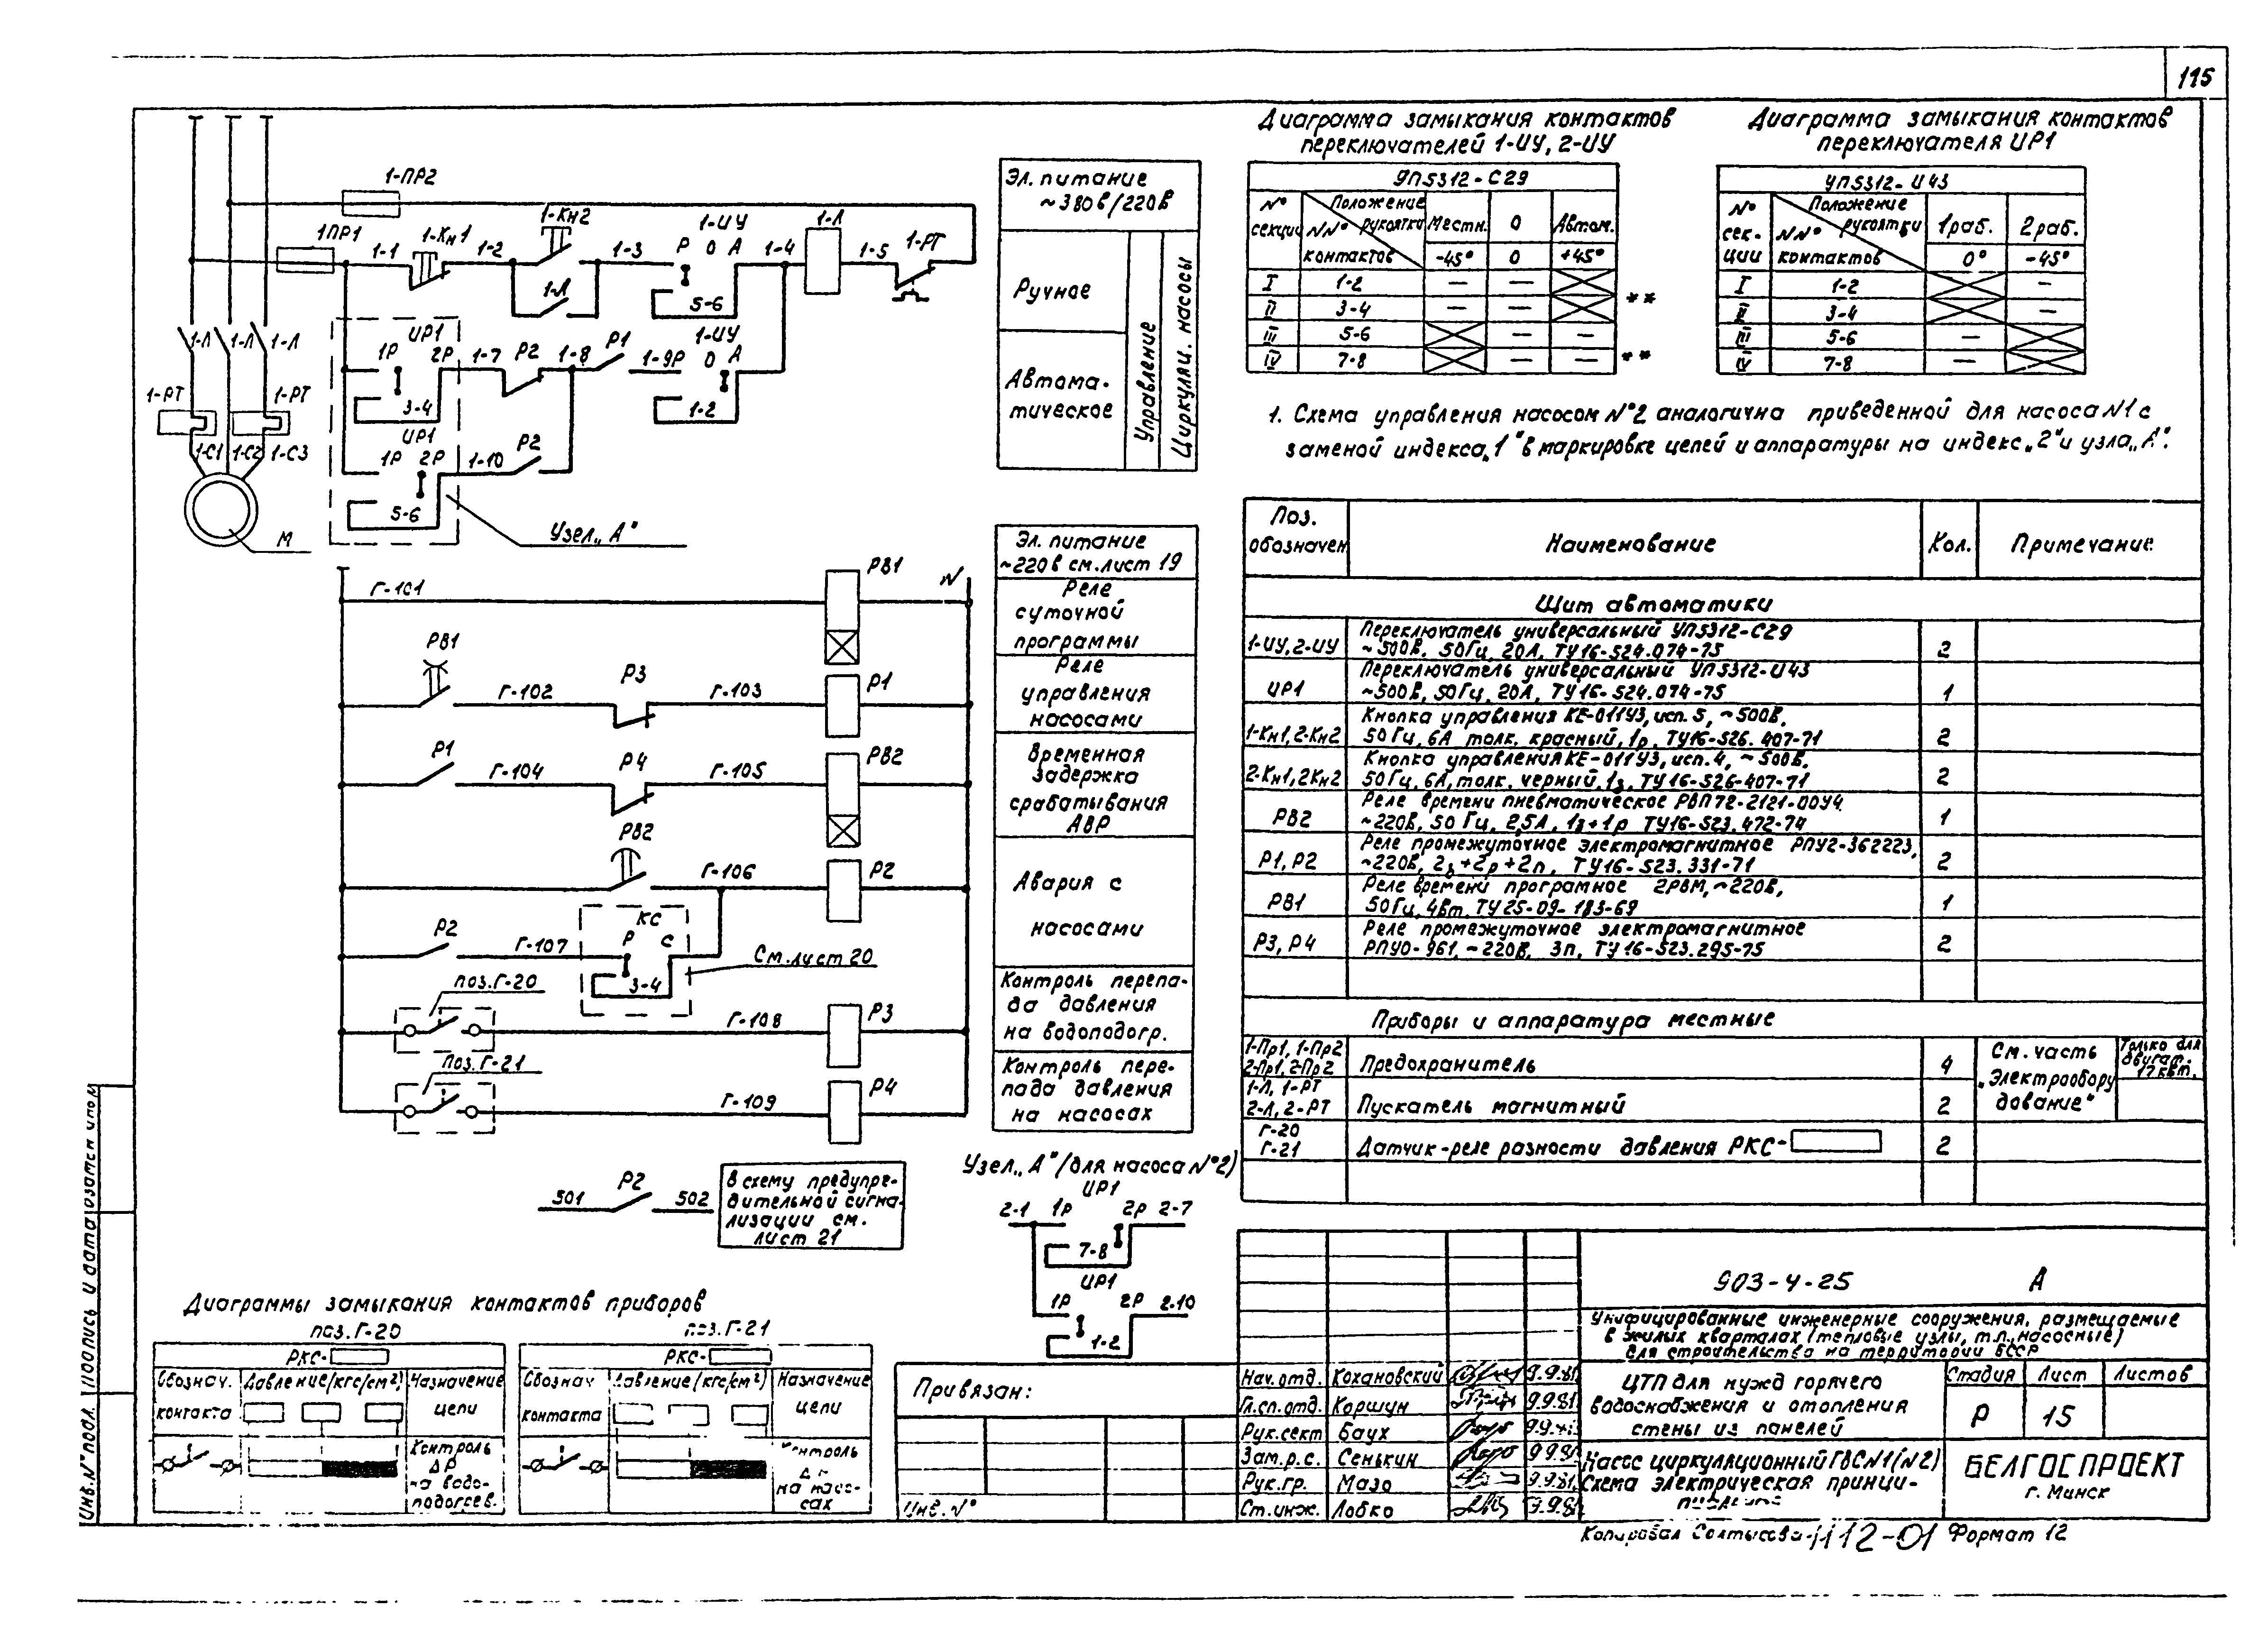 115
1-ПР2
1ПР1
1-1
1-Кн1
1-2
1-Кн2
1-3
1-ИУ
Р О А
5-6
1-4
1-Л
1-5
1-РТ
1-Л
1-Л
1-Л
1-Л
ИР1
1Р 2Р
3-4
1-7
Р2
1-8
Р1
1-9Р
1-ИУ
О А
1-2
1-РТ
1-РТ
1-С1
1-С2
1-С3
М
ИР1
1Р 2Р
5-6
1-10
Р2
Узел „А"
Эл. питание
~380в/220в
Ручное
Автома-
тическое
Управление
Циркуляц. насосы
Диаграмма замыкания контактов
переключателей 1-ИУ, 2-ИУ
УП5312-С29
№
секции
Положение
рукоятки
NN°
контактов
Местн. 0 Автом.
-45° 0 +45°
I 1-2 — —
II 3-4 — —
III 5-6 — —
IV 7-8 — —
**
**
Диаграмма замыкания контактов
переключателя ИР1
УП5312-И43
№
сек-
ции
Положение
рукоятки
NN°
контактов
1раб. 2раб.
0° -45°
I 1-2 —
II 3-4 —
III 5-6 —
IV 7-8 —
1. Схема управления насосом №2 аналогична приведенной для насоса N1 с
заменой индекса „1" в маркировке цепей и аппаратуры на индекс „2" и узла „А".
Г-101
РВ1
N
РВ1
Г-102
Р3
Г-103
Р1
Р1
Г-104
Р4
Г-105
РВ2
РВ2
Г-106
Р2
Р2
Г-107
КС
Р С
3-4
См. лист 20
поз. Г-20
Г-108
Р3
Поз. Г-21
Г-109
Р4
Эл. питание
~220в см. лист 19
Реле
суточной
программы
Реле
управления
насосами
Временная
задержка
срабатывания
АВР
Авария с
насосами
Контроль перепа-
да давления
на водоподогр.
Контроль пере-
пада давления
на насосах
501
Р2
502
В схему предупре-
дительной сигна-
лизации см.
лист 21
Узел „А" (для насоса №2)
ИР1
2-1 1Р 2Р 2-7
7-8
ИР1
1Р 2Р 2-10
1-2
Поз.
обозначен
Наименование
Кол.
Примечание
Щит автоматики
1-ИУ, 2-ИУ
Переключатель универсальный УП5312-С29
~500В, 50Гц, 20А, ТУ16-524.074-75
2
ИР1
Переключатель универсальный УП5312-И43
~500В, 50Гц, 20А, ТУ16-524.074-75
1
1-Кн1, 2-Кн2
Кнопка управления КЕ-011У3, исп. 5, ~500В,
50Гц, 6А толк. красный, 1р, ТУ16-526.407-71
2
2-Кн1, 2Кн2
Кнопка управления КЕ-011У3, исп. 4, ~500В,
50Гц, 6А, толк. черный, 1з, ТУ16-526-407-71
2
РВ2
Реле времени пневматическое РВП72-2121-00У4
~220В, 50Гц, 2,5А, 1з+1р ТУ16-523.472-74
1
Р1, Р2
Реле промежуточное электромагнитное РПУ2-362223,
~220В, 2з+2р+2п, ТУ16-523.331-71
2
РВ1
Реле времени програмное 2РВМ, ~220В,
50Гц, 4Вт, ТУ25-09-183-69
1
Р3, Р4
Реле промежуточное электромагнитное
РПУ0-961, ~220В, 3п, ТУ16-523.295-75
2
Приборы и аппаратура местные
1-Пр1, 1-Пр2
2-Пр1, 2-Пр2
Предохранитель
4
См. часть
„Электрообору
дование"
Только для
двигат.
17 кВт.
1-Л, 1-РТ
2-Л, 2-РТ
Пускатель магнитный
2
Г-20
Г-21
Датчик-реле разности давления РКС-
2
Диаграммы замыкания контактов приборов
поз. Г-20
РКС-
Обознач.
контакта
Давление (кгс/см²)
Назначение
цепи
Контроль
ΔР
на водо-
подогрев.
поз. Г-21
РКС-
Обознач
контакта
Давление (кгс/см²)
Назначение
цепи
Контроль
на насо-
сах
Привязан:
Инв. №
Нач. отд. Кохановский 9.9.81
Гл. сп. отд. Коршун 9.9.81
Рук. сект Баух
Зам. р. с. Сенькин 9.9.81
Рук. гр. Мазо 9.9.81
Ст. инж. Лобко 9.9.81
903-4-25 А
Унифицированные инженерные сооружения, размещаемые
в жилых кварталах (тепловые узлы, т.п., насосные)
для строительства на территории БССР
ЦТП для нужд горячего
водоснабжения и отопления
стены из панелей
Стадия Лист Листов
Р 15
Насос циркуляционный ГВС N1 (N2)
Схема электрическая принци-
БЕЛГОСПРОЕКТ
г. Минск
Копировал Солтысова
Формат 12
Инв. № подл. Подпись и дата